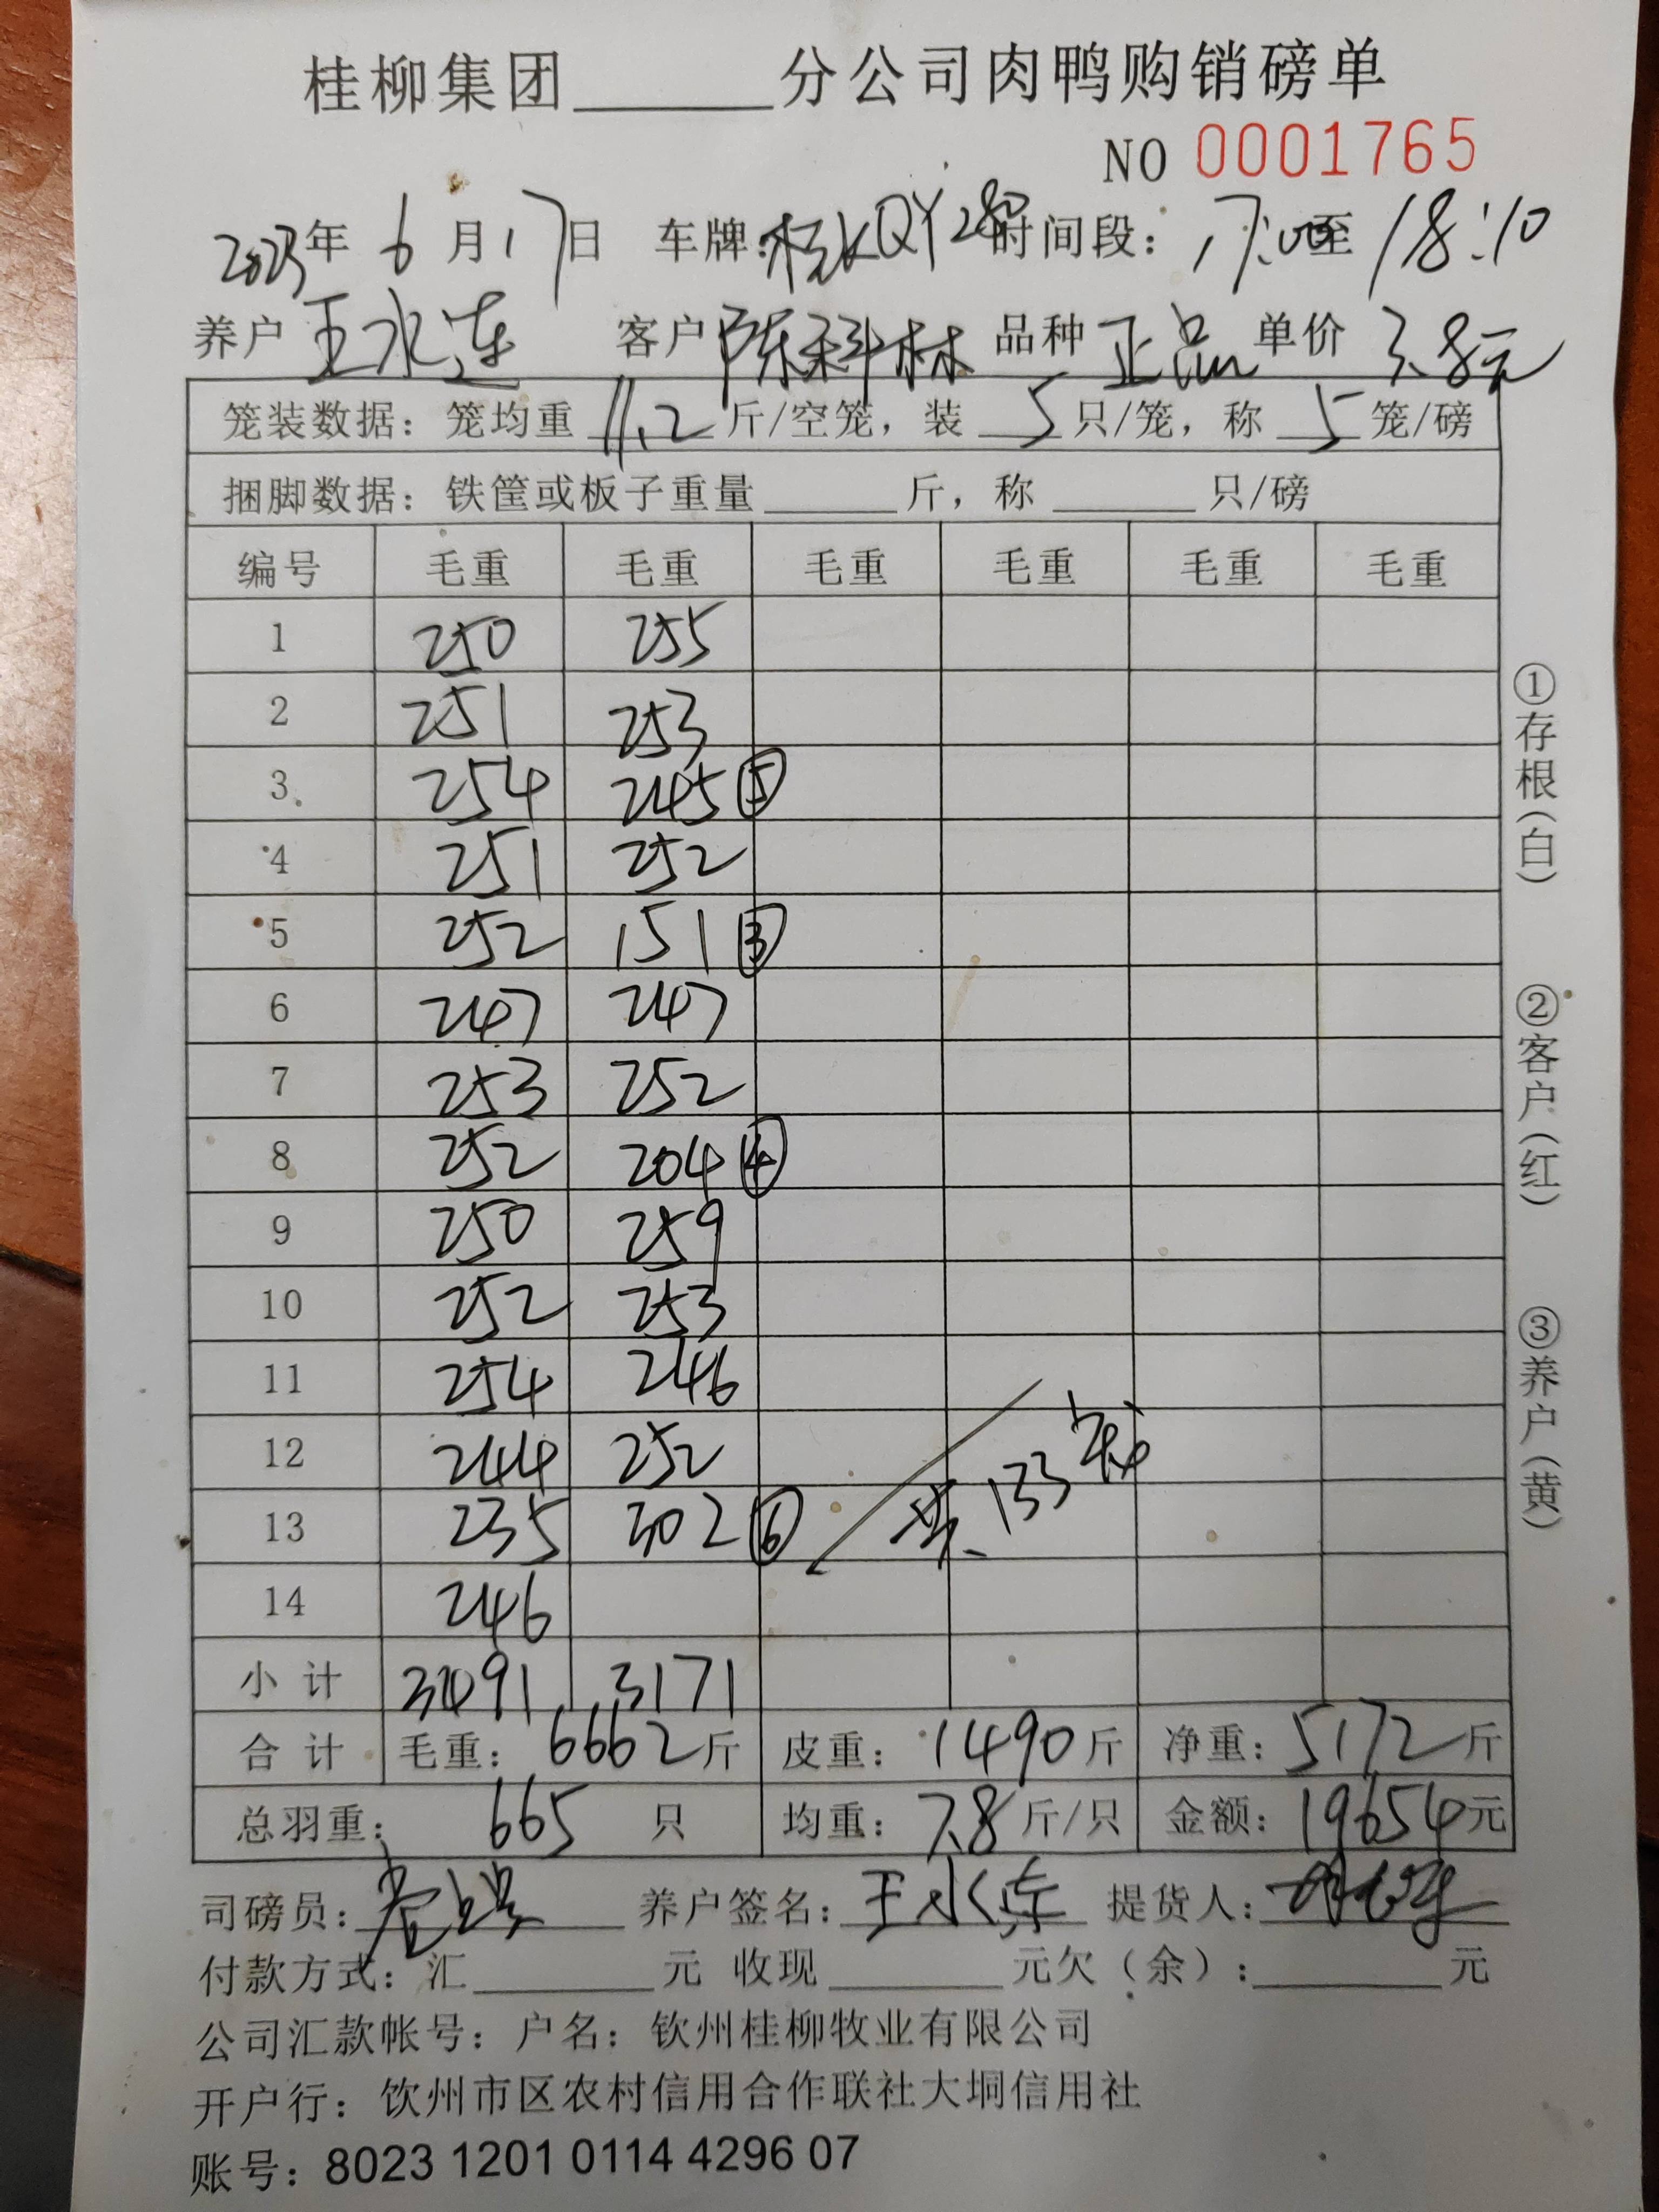 桂柳集团______分公司肉鸭购销磅单
NO 0001765
2023年 6 月 17日 车牌: QY280 时间段: 17:00至 18:10
养户 王水连 客户 陈科林 品种 正品 单价 3.8元
笼装数据: 笼均重 11.2 斤/空笼, 装 5 只/笼, 称 5 笼/磅
捆脚数据: 铁筐或板子重量______斤, 称______只/磅
编号 毛重 毛重 毛重 毛重 毛重 毛重
1 250 255
2 251 253
3 254 245 ⑤
4 251 252
5 252 151 ③
6 247 247
7 253 252
8 252 204 ④
9 250 259
10 252 253
11 254 246
12 244 252
13 235 302 ⑥ 共133
14 246
小计 3491 3171
合计 毛重: 6662斤 皮重: 1490斤 净重: 5172斤
总羽重: 665 只 均重: 7.8斤/只 金额: 19654元
司磅员: 养户签名: 王水连 提货人:
付款方式: 汇______元 收现______元欠(余):______元
公司汇款帐号: 户名: 钦州桂柳牧业有限公司
开户行: 钦州市区农村信用合作联社大垌信用社
账号: 8023 1201 0114 4296 07
①存根(白)
②客户(红)
③养户(黄)